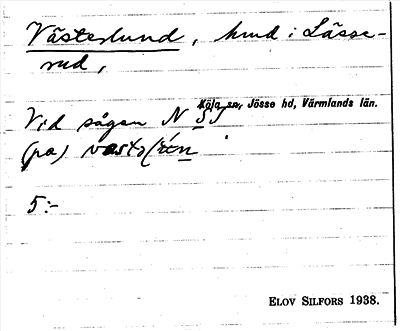 Västerlund, hmd i Lässe-
rud,
Köla sn, Jösse hd, Värmlands län.
Vid sågen N
(på)
5:-
ELOV SILFORS 1938.